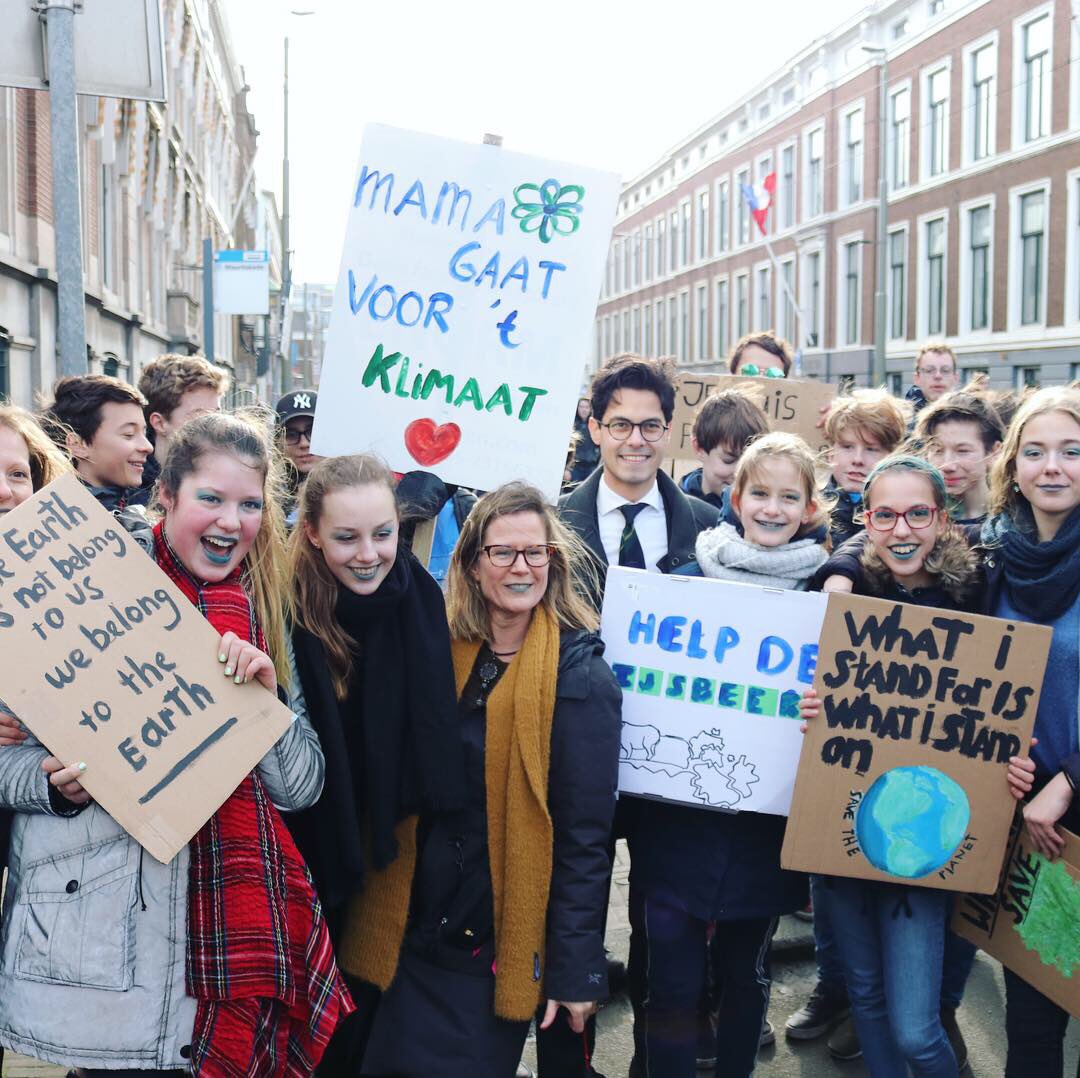 MAMA
GAAT
VOOR 't
KLiMAAT
Earth
not belong
to us
we belong
to the
Earth
HELP DE
IJSBEER
WHAT i
STAND FOR iS
WHAT i STAND
ON
SAVE THE
PLANET
SAVE
NY